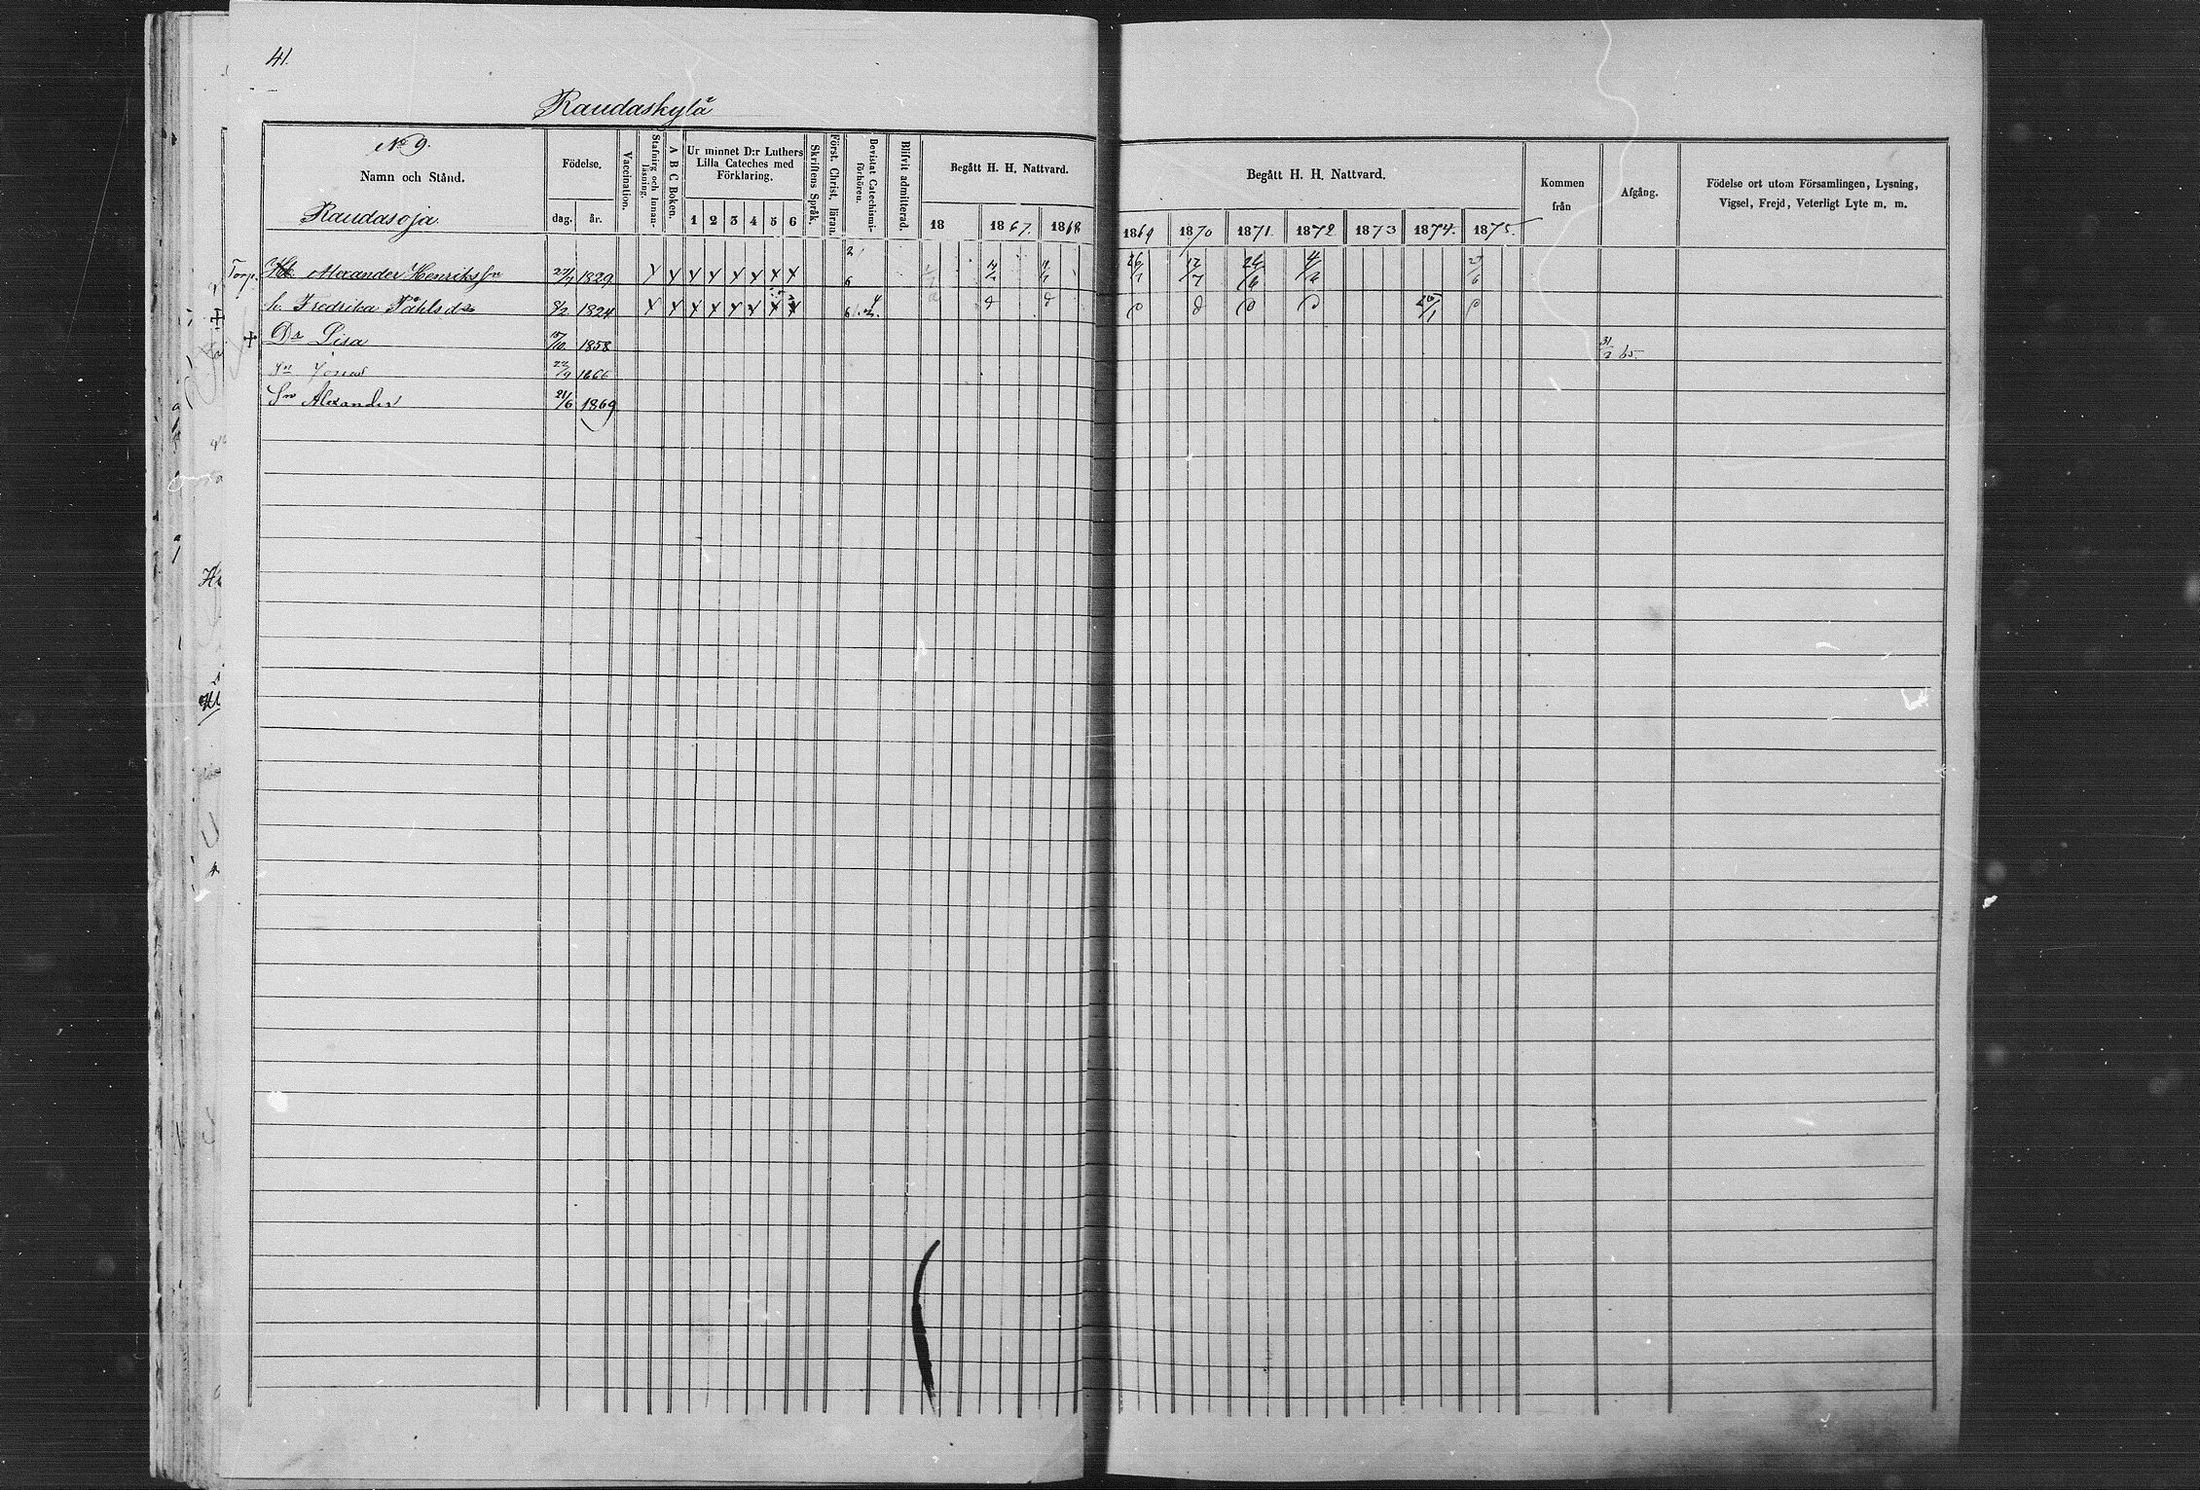 41.
Raudaskylä
No 9.
Namn och Stånd.
Raudasoja
Födelse.
dag. år.
Vaccination.
Stafning och Innan-läsning.
A B C Boken.
Ur minnet D:r Luthers Lilla Cateches med Förklaring.
1 2 3 4 5 6
Skriftens Språk.
Först. Christ. läran.
Bevistat Catechismi-förhören.
Blifvit admitterad.
Begått H. H. Nattvard.
18 1867. 1868
Begått H. H. Nattvard.
1869 1870 1871. 1872 1873 1874. 1875.
Kommen från
Afgång.
Födelse ort utom Församlingen, Lysning, Vigsel, Frejd, Veterligt Lyte m. m.
Torp. Alexander Henriksson 1829 X X X X X X X X 6 26/1 12/7 24/6
h. Fredrika Påhlsdr 8/2 1824 X X X X X X X X
+ Dr Lisa 15/10 1858 65.
Sn Jonas 22/9 1866
Sn Alexander 21/6 1869